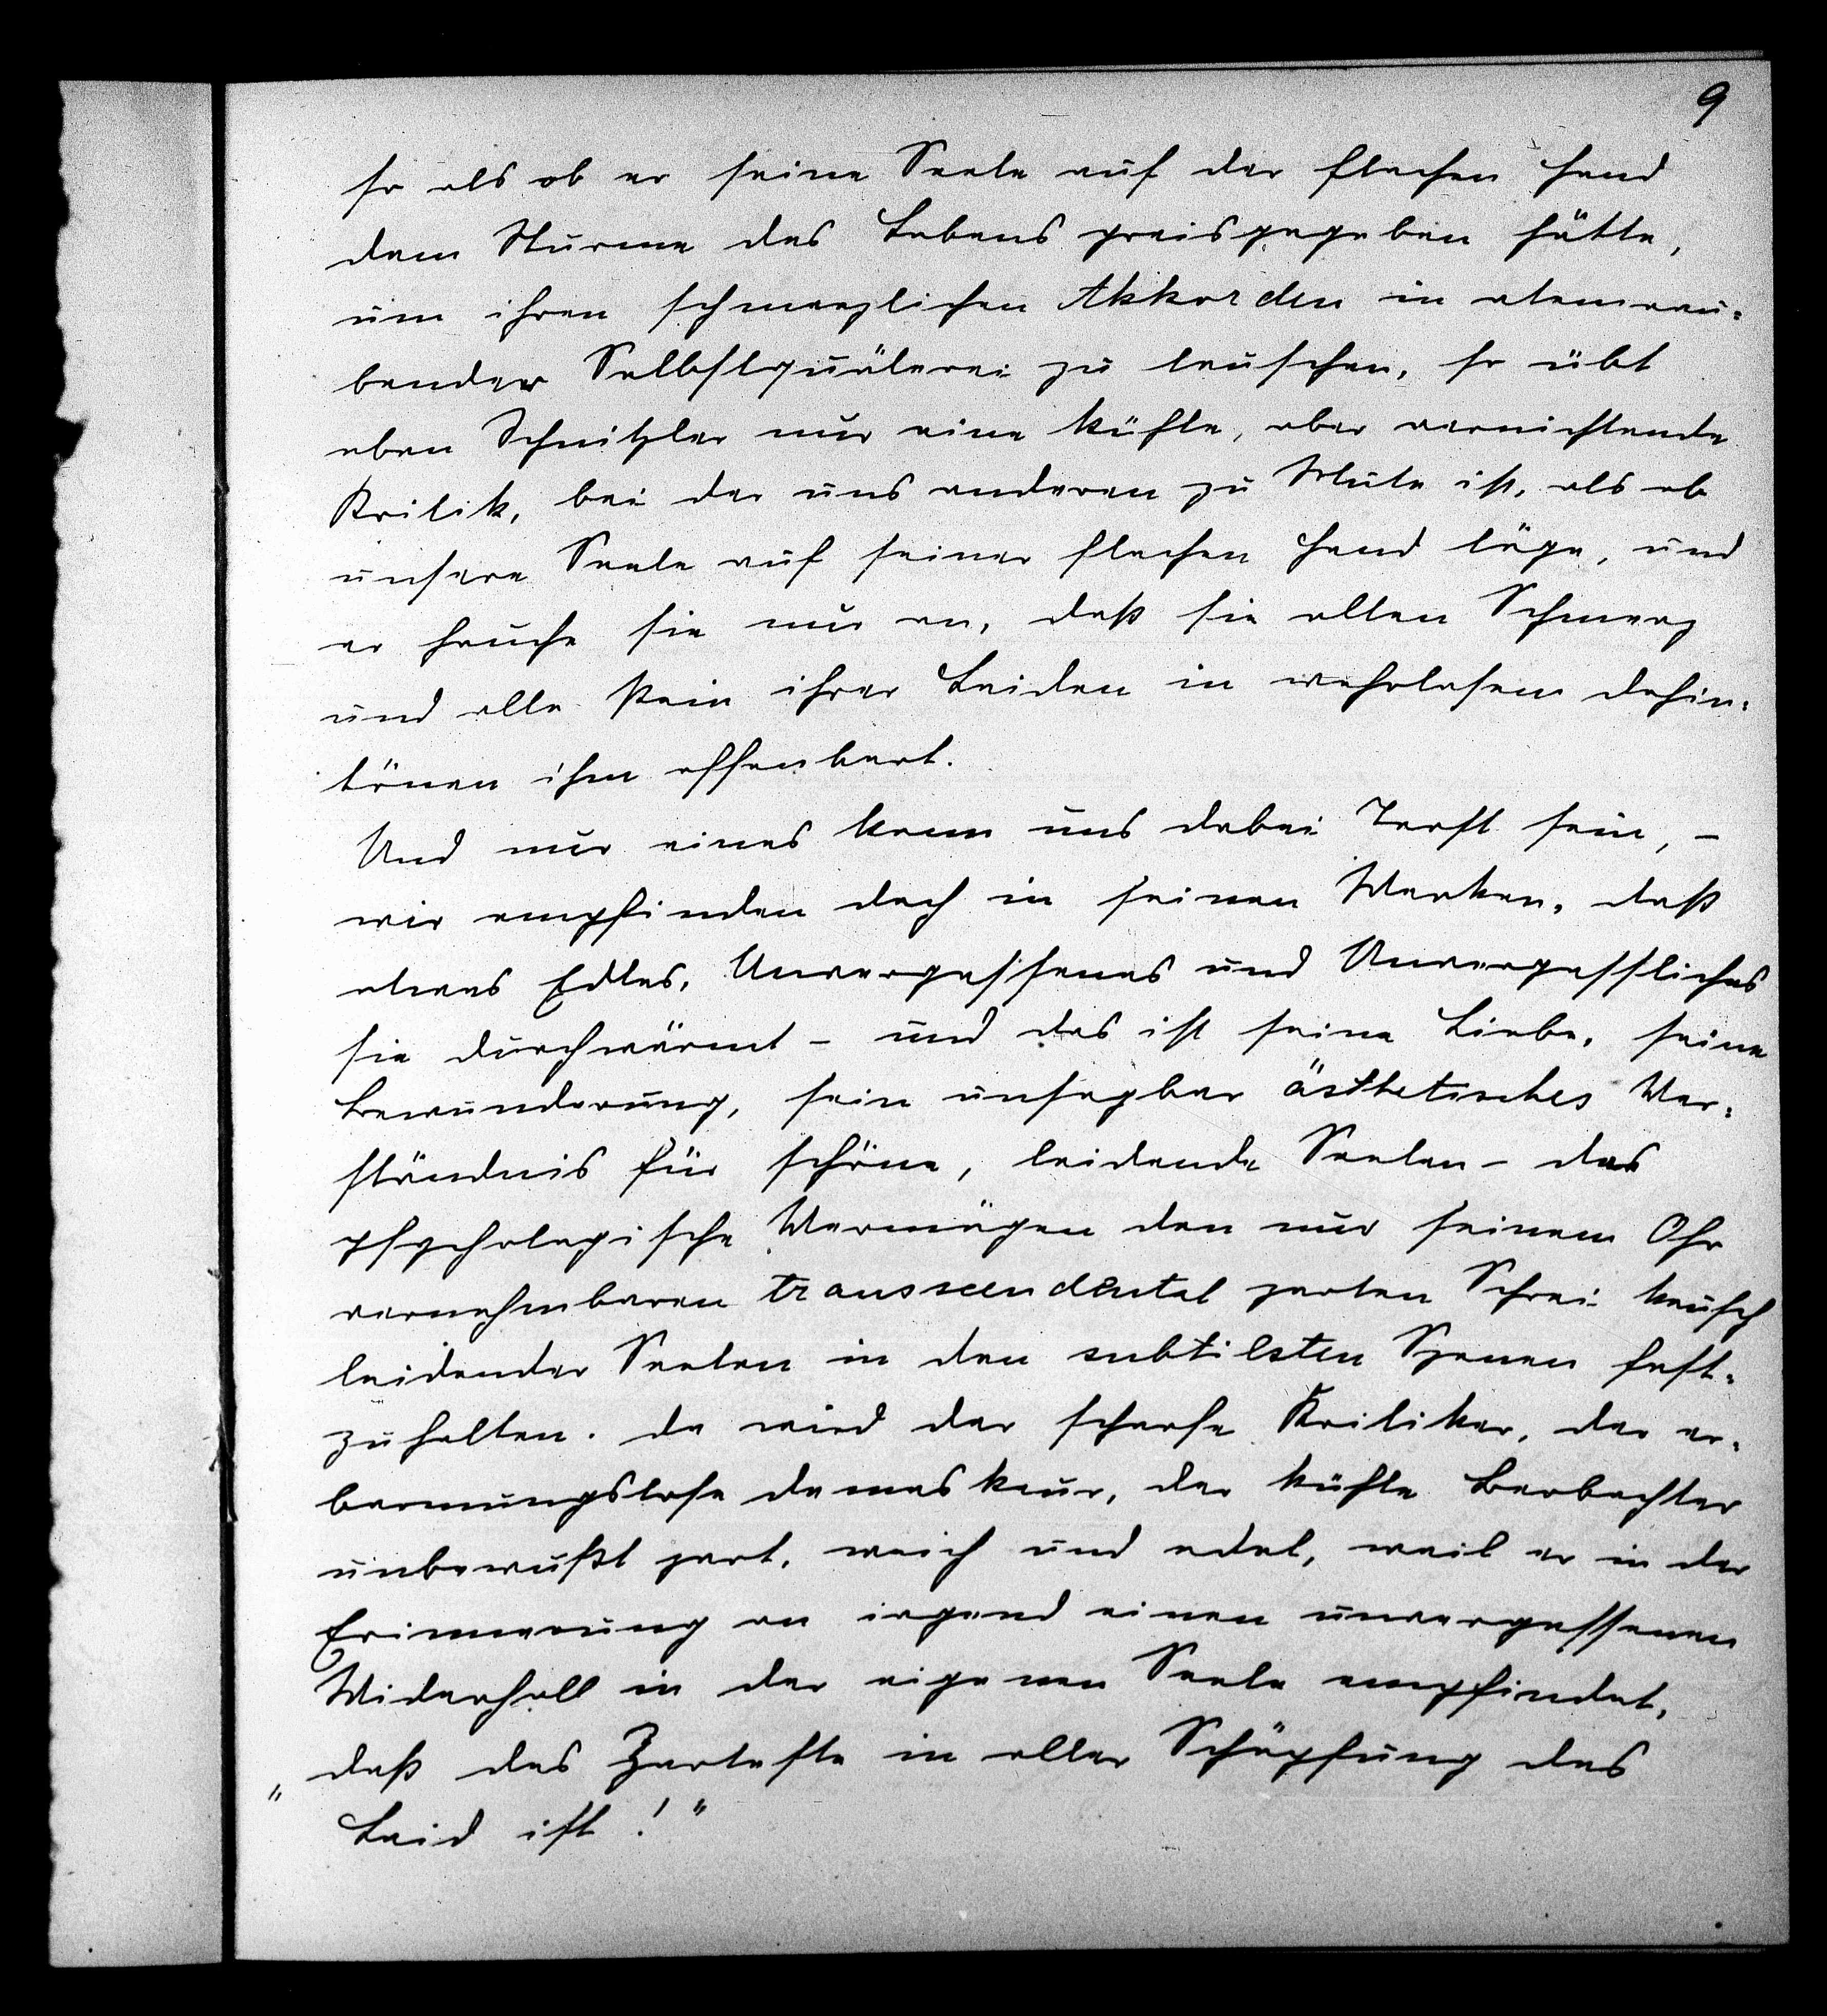 9
so als ob er seine Seele auf der flachen Hand
dem Sturme des Lebens preisgegeben hätte,
um ihren schmerzlichen Akkorden in atemrau-
bender Selbstquälerei zu lauschen, so übt
eben Schnitzler nur eine kühle, aber vernichtende
Kritik, bei der uns anderen zu Mute ist, als ob
unsere Seele auf seiner flachen Hand läge, und
er hauche sie nur an, daß sie allen Schmerz
und alle Pein ihrer Leiden in wehrlosem dahin-
tönen ihm offenbart.
Und nur eines kann uns dabei Trost sein, –
wir empfinden doch in seinen Werken, daß
etwas Edles, Unvergessenes und Unvergessliches
sie durchwärmt – und das ist seine Liebe, seine
Bewunderung, sein unsagbar ästhetisches Ver-
ständnis für schöne, leidende Seelen – das
psychologische Vermögen den nur seinem Ohr
vernehmbaren transscendental zarten Schrei keusch
leidender Seelen in den subtilsten Szenen fest-
zuhalten. da wird der scharfe Kritiker, der er-
barmungslose demaskeur, der kühle Beobachter
unbewußt zart, weich und edel, weil er in der
Erinnerung an irgend einen unvergessenen
Widerhall in der eigenen Seele empfindet,
"daß das Zarteste in aller Schöpfung das
Leid ist!"